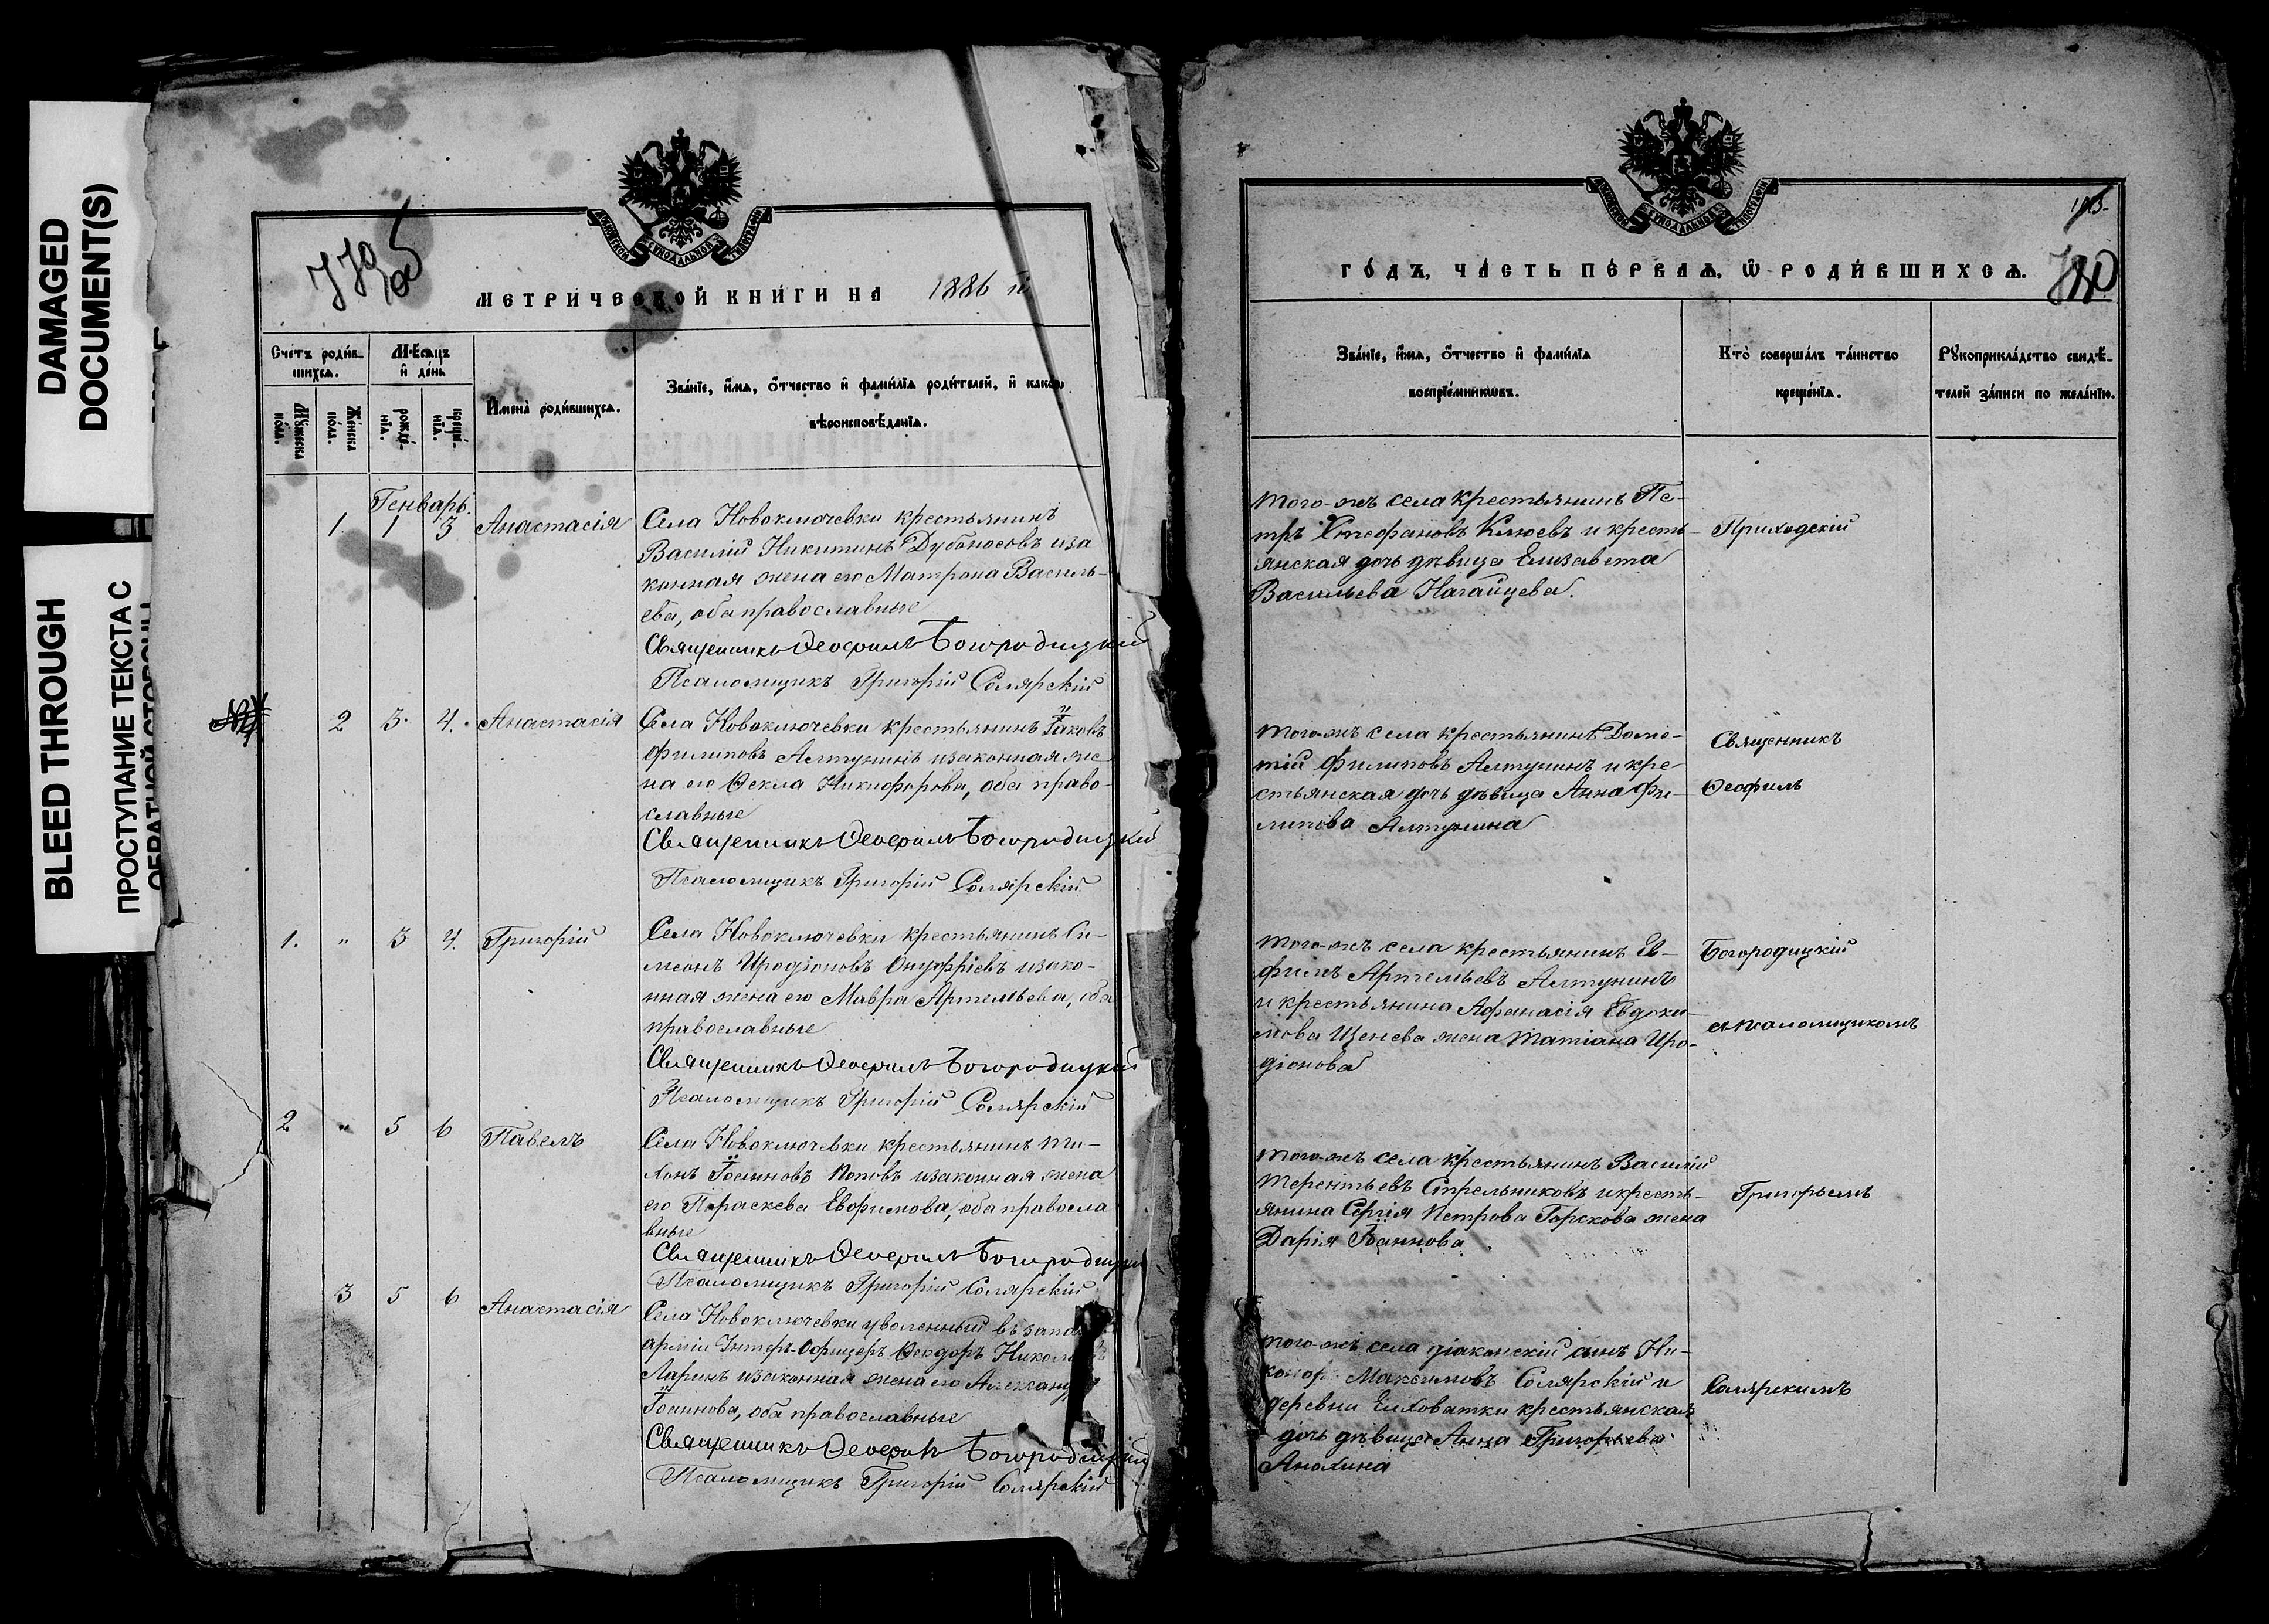 DAMAGED
DOCUMENT(S)
BLEED THROUGH
ПРОСТУПАНИЕ ТЕКСТА С
ОБРАТНОЙ СТОРОНЫ
МЕТРИЧЕСКОЙ КНИГИ НА 1886 й
Счетъ родив-
шихся.
Мѣсяцъ
и день
Мужеска
пола.
Женска
пола.
рожде-
нія.
креще-
нія.
Имена родившихся.
Званіе, имя, отчество и фамилія родителей, и какого
вѣроисповѣданія.
Генварь.
1 1 3 Анастасія
Села Новоключевки крестьянинъ
Василій Никитинъ Дубоносовъ иза
конная жена его Матрона Василь-
ева, оба православные
Священникъ Ѳеофилъ Богородицкій
Псаломщикъ Григорій Солярскій
2 3. 4. Анастасія
Села Новоключевки крестьянинъ Іаковъ
Филиповъ Алтунинъ изаконная же
на его Ѳекла Никифорова, оба право-
славные
Священникъ Ѳеофилъ Богородицкій
Псаломщикъ Григорій Солярскій
1. " 3 4. Григорій
Села Новоключевки крестьянинъ Си-
меонъ Иродіоновъ Онуфріевъ изако-
нная жена его Мавра Артемьева, оба
православные
Священникъ Ѳеофилъ Богородицкій
Псаломщикъ Григорій Солярскій
2 " 5 6 Павелъ
Села Новоключевки крестьянинъ Ти-
хонъ Іоанновъ Поповъ изаконная жена
его Параскева Евфимова, оба правосла
вные
Священникъ Ѳеофилъ Богородицкій
Псаломщикъ Григорій Солярскій
3 5 6 Анастасія
Села Новоключевки уволенный въ запа
арміи Унтеръ-Офицеръ Ѳеодоръ Никола
Ларинъ изаконная жена его Александ
Іоаннова, оба православные
Священникъ Ѳеофилъ Богородицкій
Псаломщикъ Григорій Солярскій
ГОДЪ, ЧАСТЬ ПЕРВАЯ, Ѡ РОДИВШИХСЯ.
Званіе, имя, отчество и фамилія
воспріемниковъ.
Кто совершалъ таинство
крещенія.
Рукоприкладство свидѣ-
телей записи по желанію.
Того-жъ села крестьянинъ Пе-
тръ Стефановъ Клюевъ и кресть-
янская дочь дѣвица Елизавета
Васильева Нагайцева.
Приходскій
Того-жъ села крестьянинъ Доме-
тій Филиповъ Алтунинъ и кре-
стьянская дочь дѣвица Анна Фи-
липова Алтунина
Священникъ
Ѳеофилъ
Того-жъ села крестьянинъ Ев-
фимъ Артемьевъ Алтунинъ
и крестьянина Афанасія Евдоки-
мова Щенева жена Татіана Иро-
діонова
Богородицкій
съ псаломщикомъ
Того-жъ села крестьянинъ Василій
Терентьевъ Стрельниковъ и кресть-
янина Сергія Петрова Горскова жена
Дарія Іоаннова
Григорьемъ
Того-жъ села діаконскій сынъ Ни-
каноръ Максимовъ Солярскій и
деревни Елховатки крестьянская
дочь дѣвица Анна Григорьева
Анохина
Солярскимъ